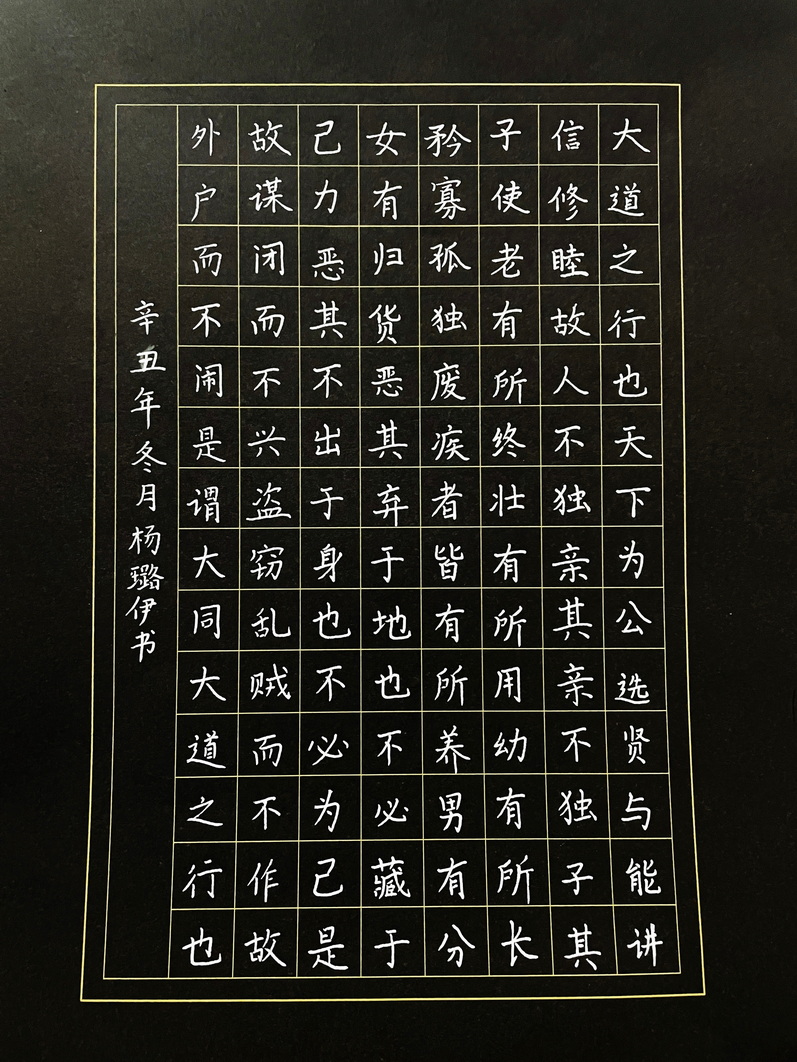 大道之行也天下为公选贤与能讲
信修睦故人不独亲其亲不独子其
子使老有所终壮有所用幼有所长
矜寡孤独废疾者皆有所养男有分
女有归货恶其弃于地也不必藏于
己力恶其不出于身也不必为己是
故谋闭而不兴盗窃乱贼而不作故
外户而不闹是谓大同大道之行也
辛丑年冬月杨璐伊书